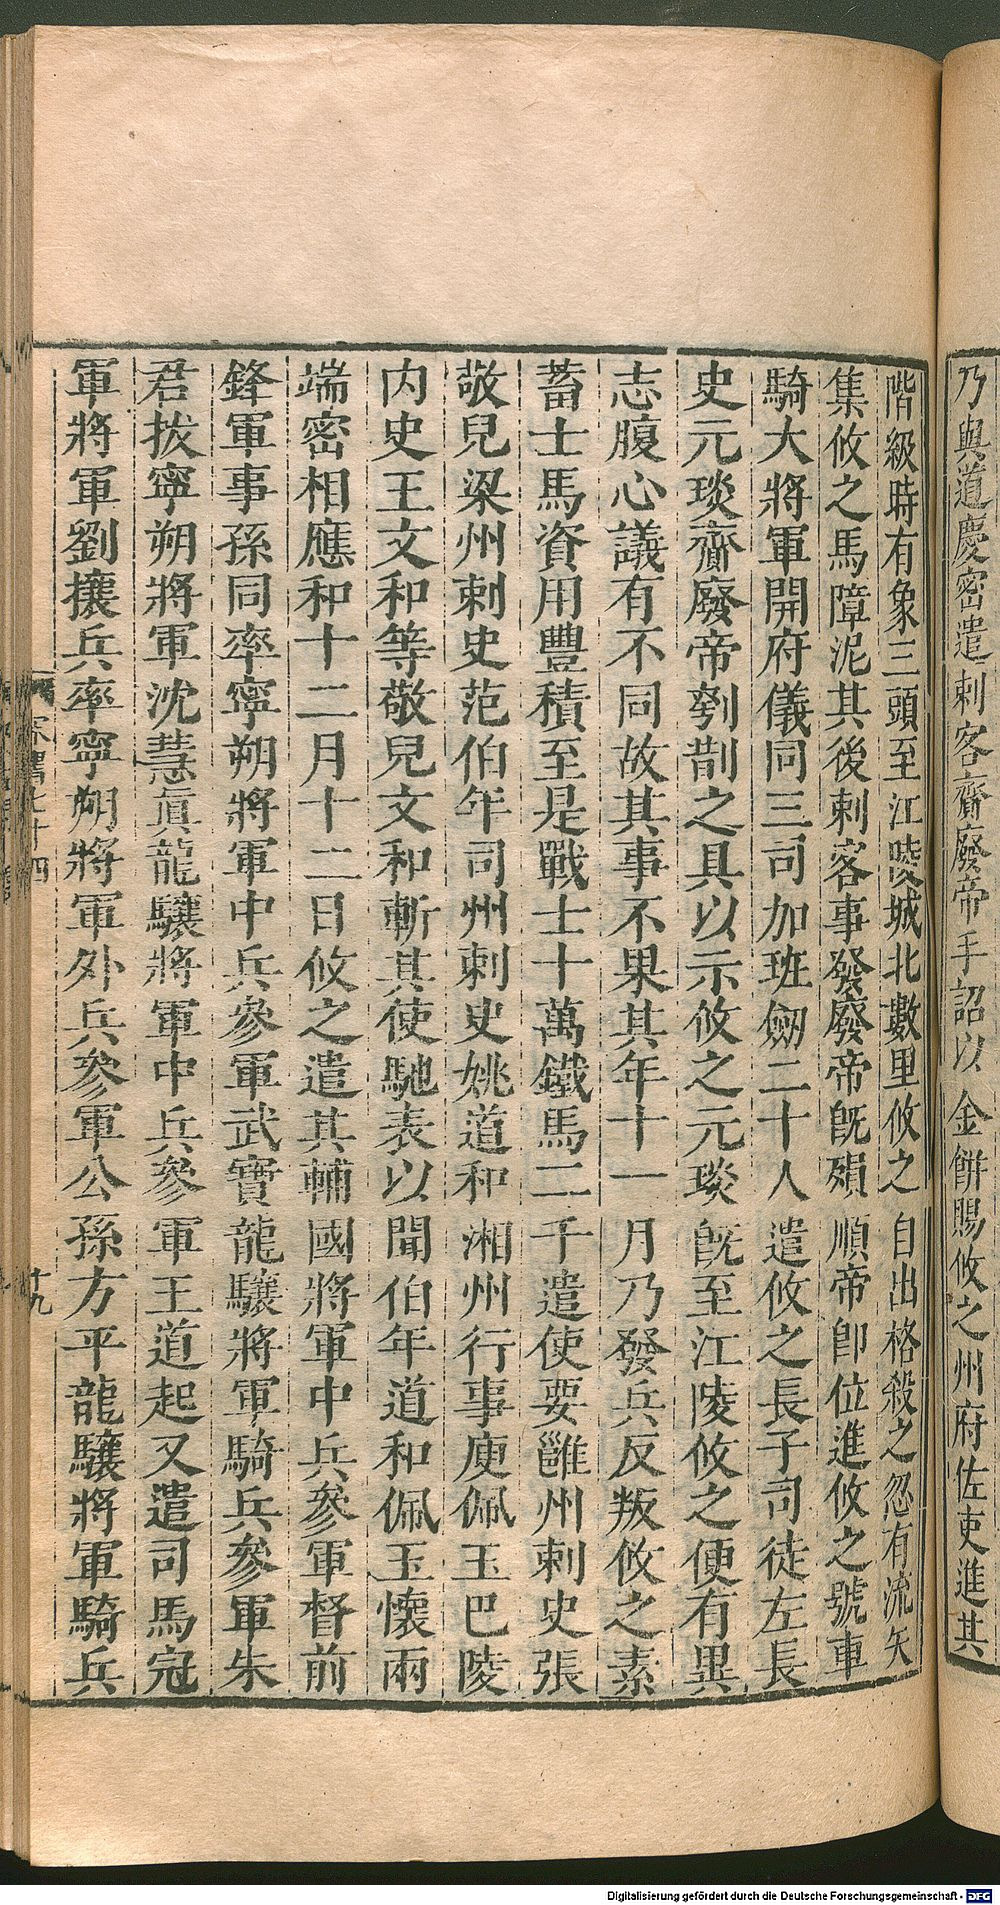 乃與道慶密遣刺客齎廢帝手詔以金餅賜攸之州府佐吏進其
階級時有象三頭至江陵城北數里攸之自出格殺之忽有流矢
集攸之馬障泥其後刺客事發廢帝旣殞順帝卽位進攸之號車
騎大將軍開府儀同三司加班劒二十人遣攸之長子司徒左長
史元琰齎廢帝刳剒之具以示攸之元琰旣至江陵攸之便有異
志腹心議有不同故其事不果其年十一月乃發兵反叛攸之素
蓄士馬資用豐積至是戰士十萬鐵馬二千遣使要雝州刺史張
敬兒梁州刺史范伯年司州刺史姚道和湘州行事庾佩玉巴陵
内史王文和等敬兒文和斬其使馳表以聞伯年道和佩玉懷兩
端密相應和十二月十二日攸之遣其輔國將軍中兵參軍督前
鋒軍事孫同率寧朔將軍中兵參軍武寶龍驤將軍騎兵參軍朱
君拔寧朔將軍沈慧眞龍驤將軍中兵參軍王道起又遣司馬冦
軍將軍劉攘兵率寧朔將軍外兵參軍公孫方平龍驤將軍騎兵
宋書七十四
十九
Digitalisierung gefördert durch die Deutsche Forschungsgemeinschaft - DFG